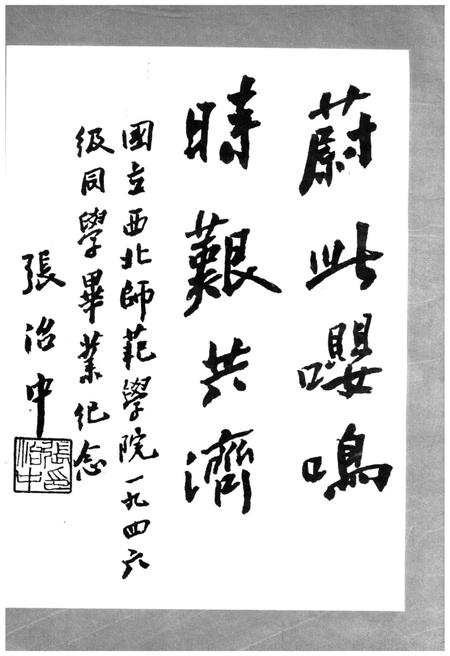 蔚此嚶鳴
時艱共濟
國立西北師範學院一九四六
級同學畢業紀念
張治中
張治中印